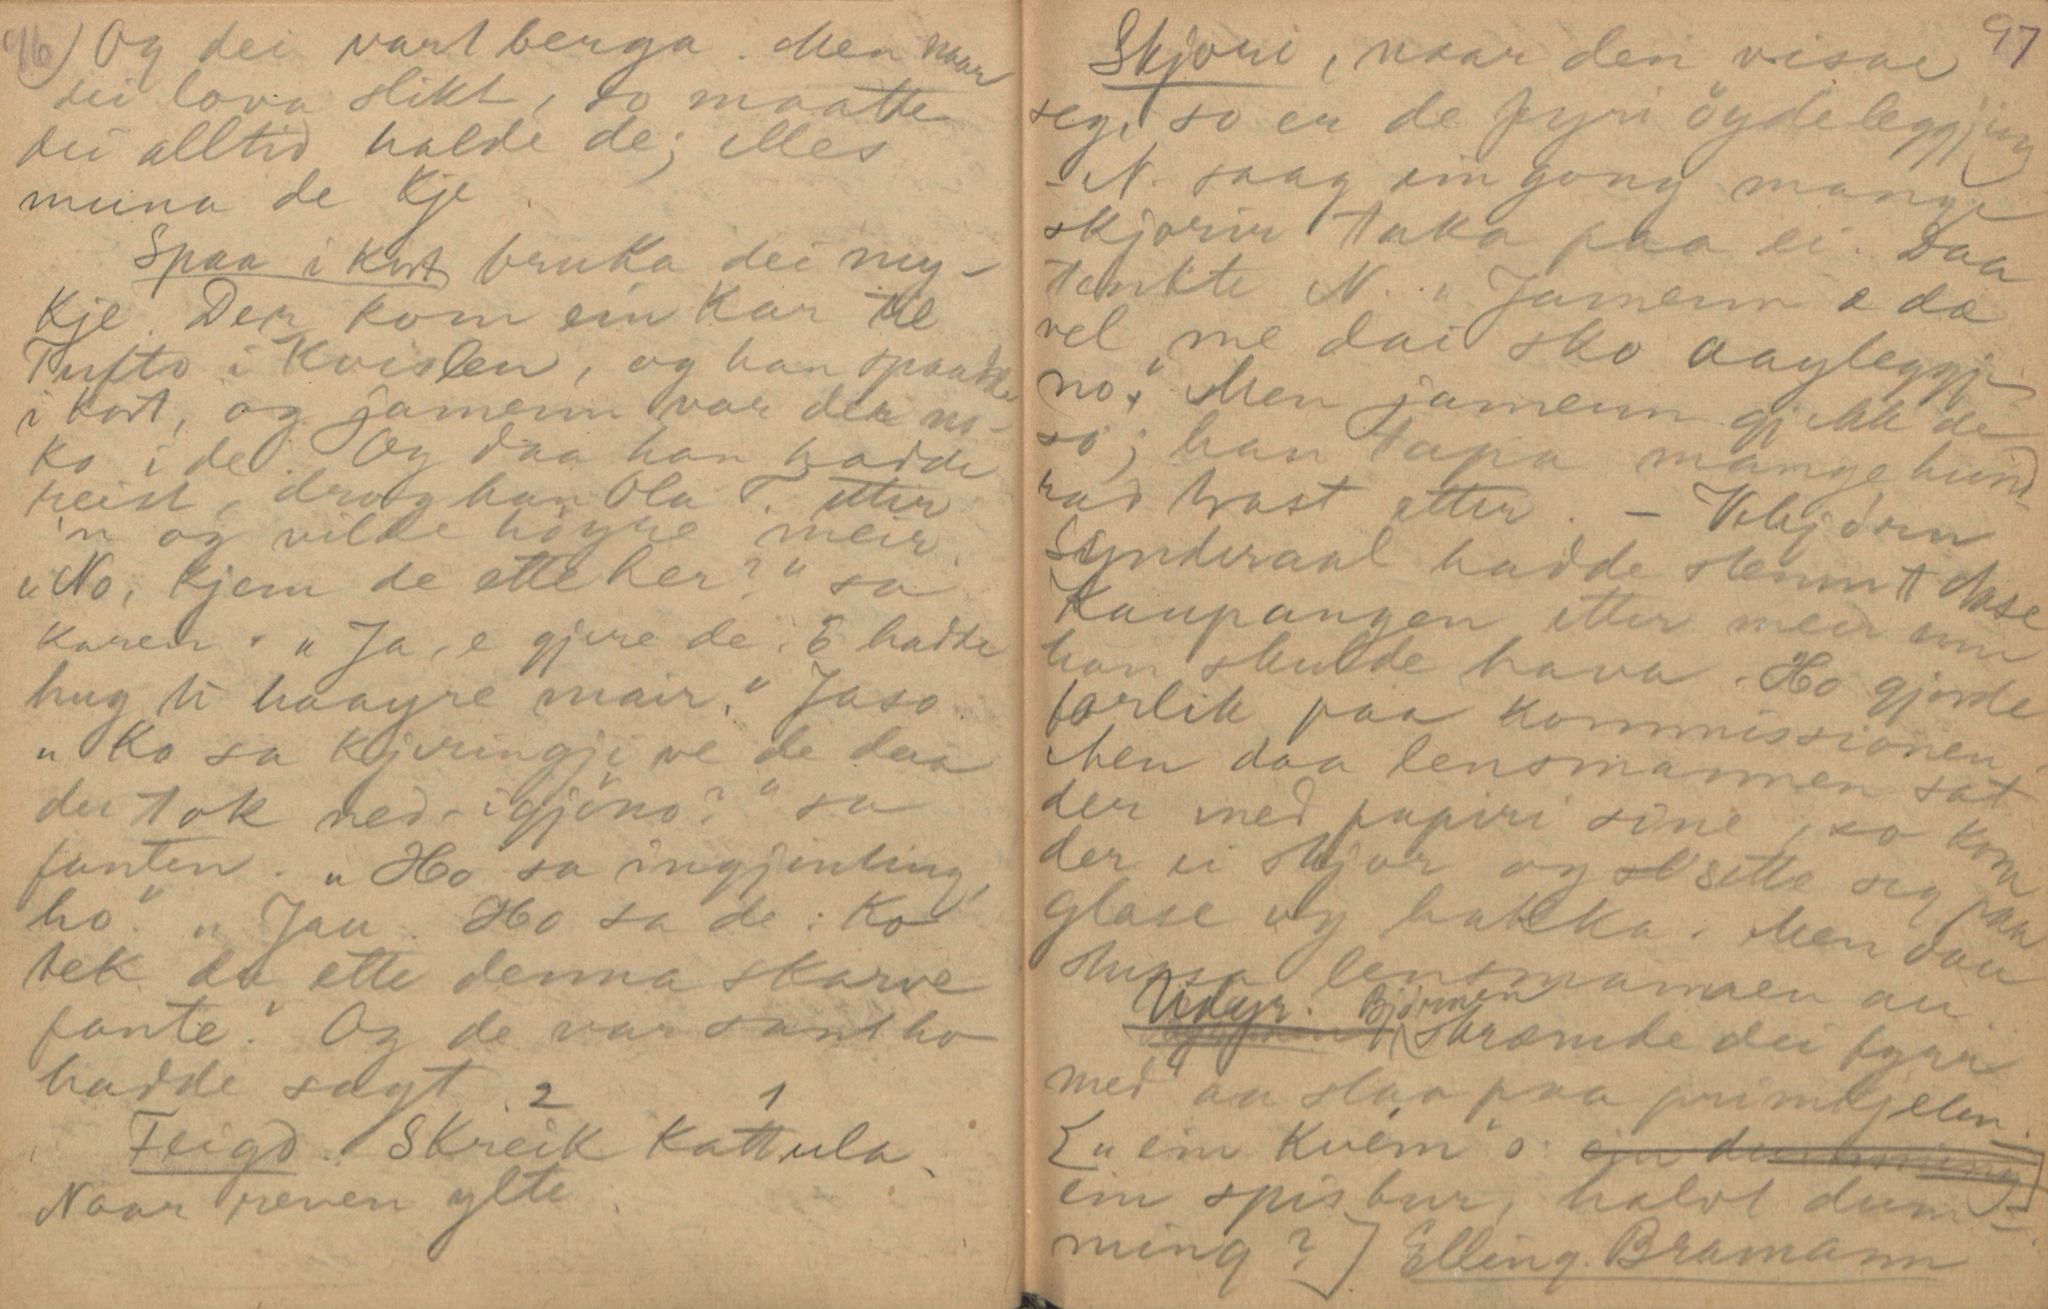 96) Og dei vart berga. Men naar
dei lova slikt, so maatte
dei alltid halde de; elles
muna de kje.
Spaa i kort bruka dei my-
kje. Der kom ein kar til
Tufto i Kvislen, og han spaadde
i kort, og jamenn var der no-
ko i de. Og daa han hadde
reist, drog han Ola T. etter
'n og vilde höyre meir.
"No, kjem de ette her?" sa
karen. "Ja, e gjere de. E hadde
hug ti haayre mair." Jaso.
"Ko sa kjeringji ve de daa
du tok ned-igjöno?" sa
fanten. "Ho sa ingjinting,
ho." "Jau. Ho sa de: Ko
tek du ette denna skarve
fante." Og de var sant ho
hadde sagt.
2 1
Feigd. Skreik kattula.
Naar reven ylte
97
Skjori, naar den visar
seg, so er de fyri öydeleggjing
- N. saag ein gong mange
skjorir taka paa ei. Daa
tenkte N. "Jamenn æ dæ
vel me dai sko aayleggji
no." Men jamenn gjekk de
so; han tapa mange hund-
rad hast etter. - Vebjörn
Synderaal hadde stemnt Aase
Kaupangen etter meir enn
han skulde hava. Ho gjorde
forlik paa kommissionen.
Men daa lensmannen sat
der med papiri sine, so kom
der ei skjor og sette seg paa
glase og hakka. Men daa
lensmannen au.
Udyr. Björnen skræmde dei fyrr
med aa slaa paa primkjelen.
["ein kvem" o: ein dumming]
ein spisbur, halvt dum-
ming?] Elling Bramann